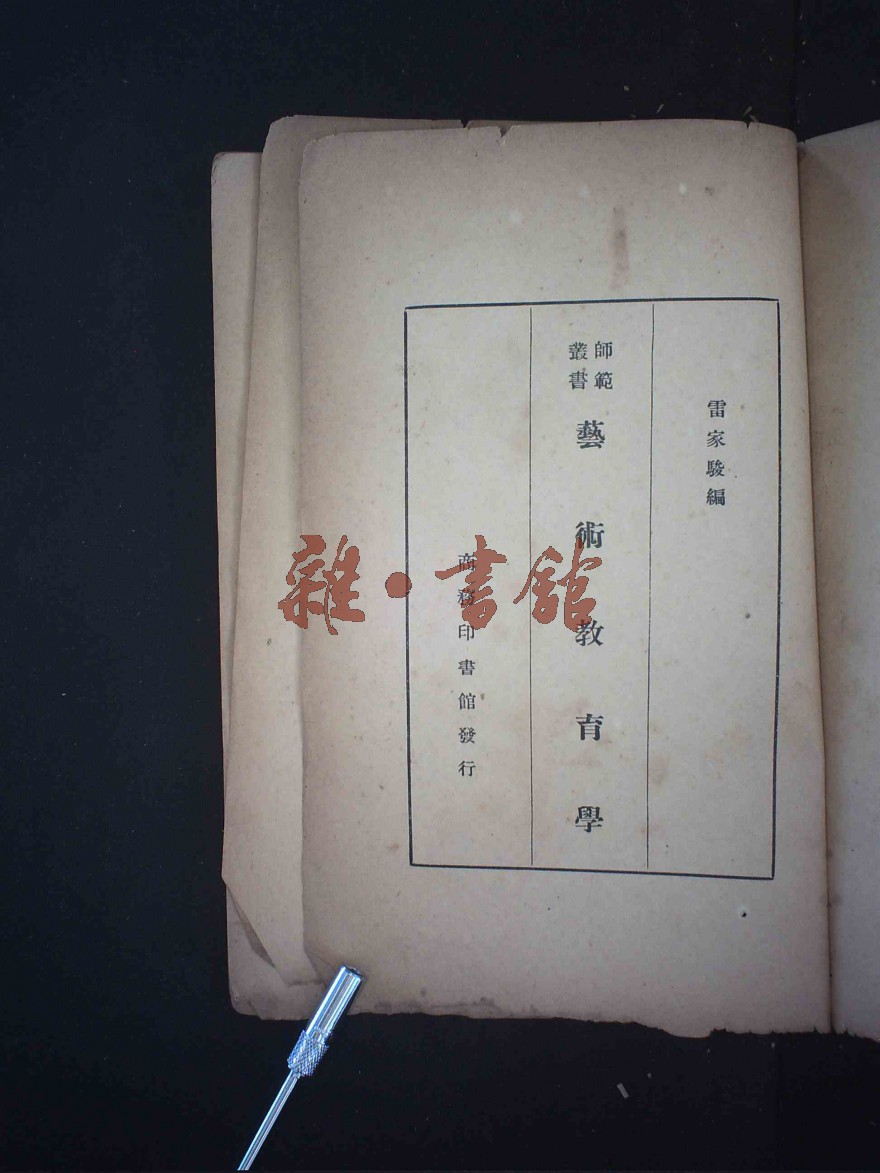 雷家駿編
師範
叢書
藝術教育學
商務印書館發行
雜·書館